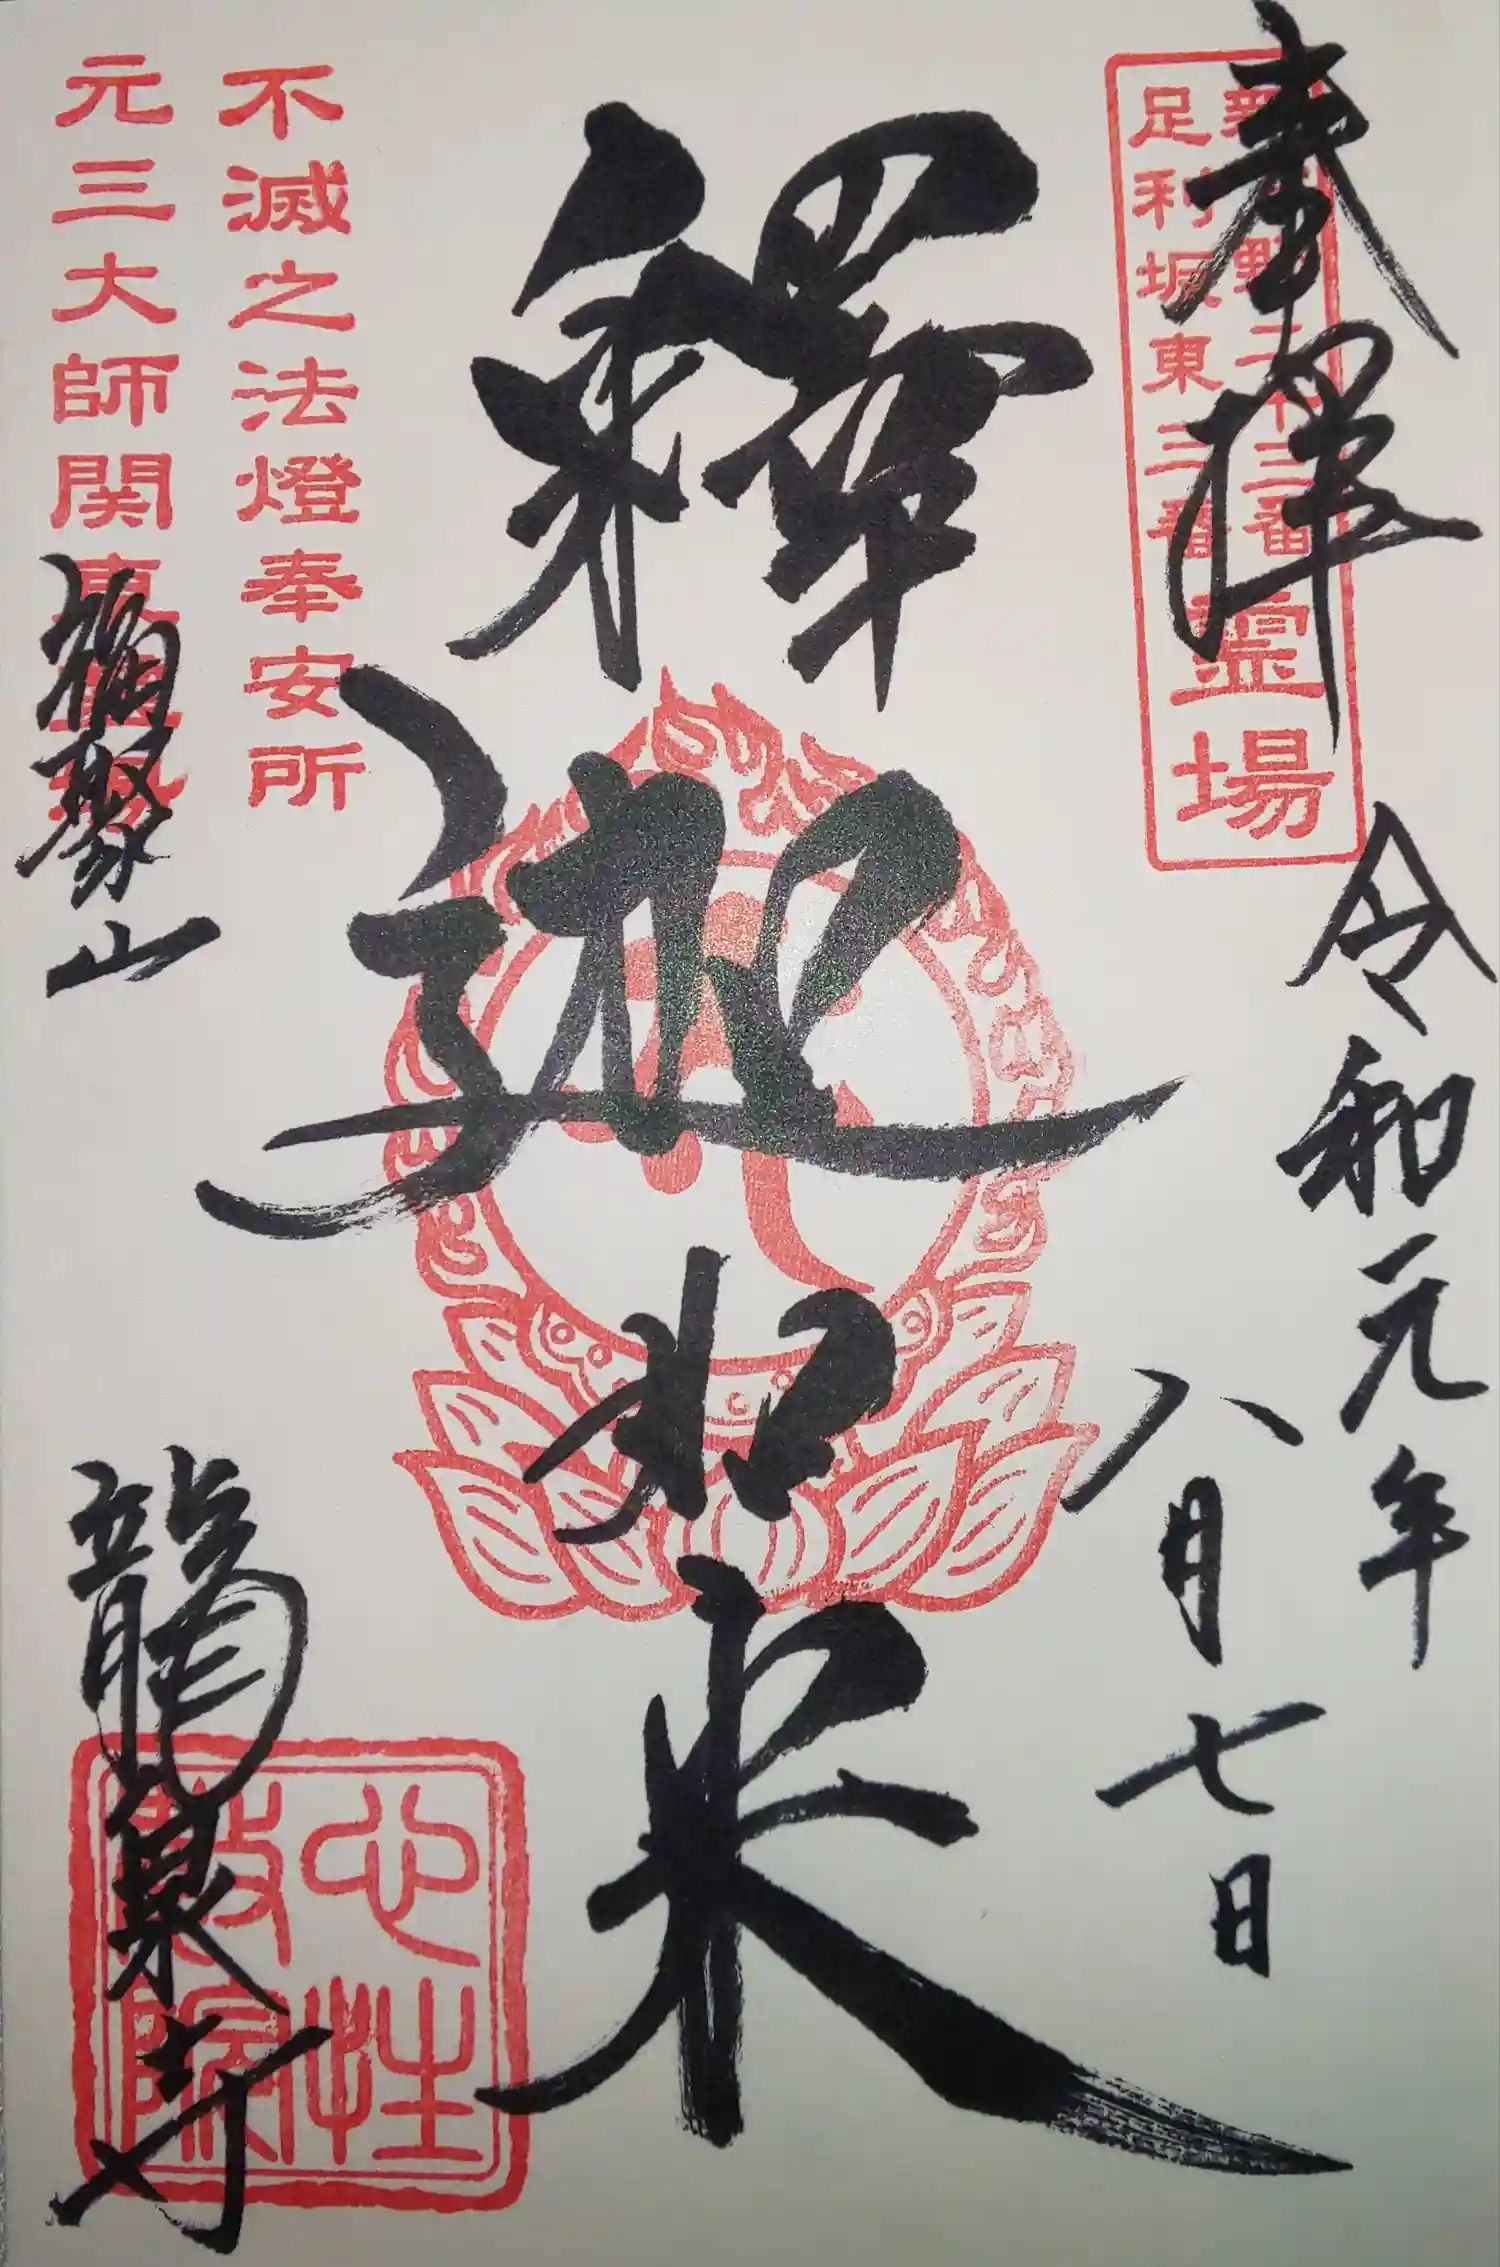 奉拝
足利坂東三番
霊場
令和元年
八月七日
釋迦如来
不滅之法燈奉安所
元三大師関東
山
龍泉寺
心性
院